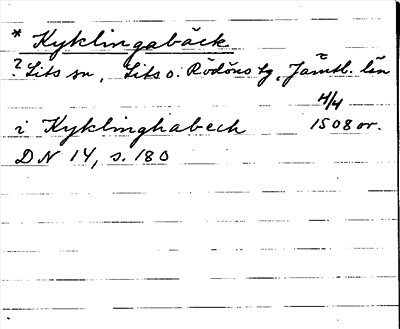 * Kyklingabäck
? Lits sn, Lits o. Rödöns tg, Jämtl. län
4/4
i Kyklinghabech 1508 or.
DN 14, s. 180